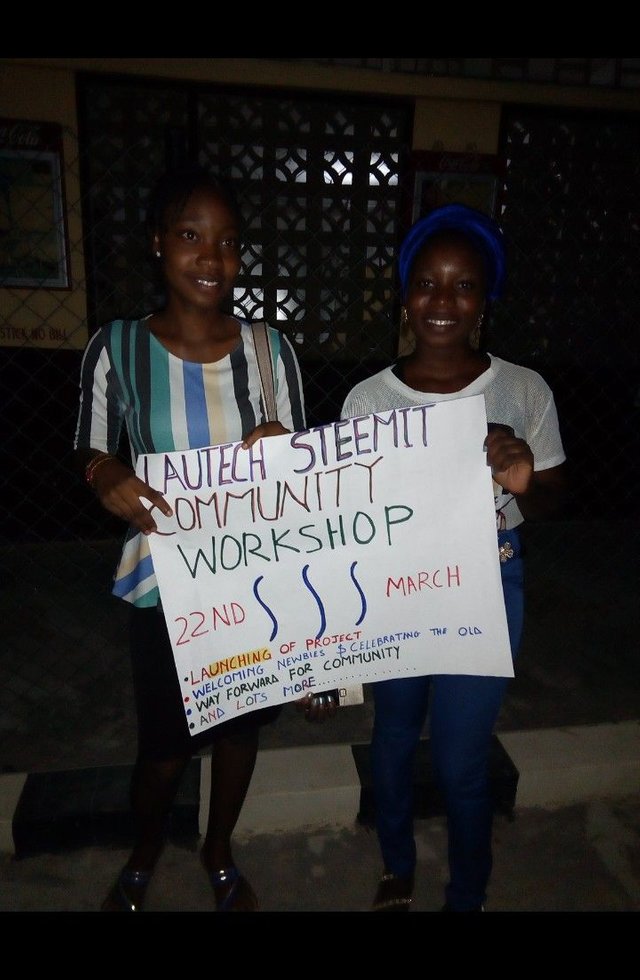 Coca-Cola
STICK NO BILL
LAUTECH STEEMIT
COMMUNITY
WORKSHOP
22ND SSS MARCH
• LAUNCHING OF PROJECT
• WELCOMING NEWBIES $ CELEBRATING THE OLD
• WAY FORWARD FOR COMMUNITY
• AND LOTS MORE...............